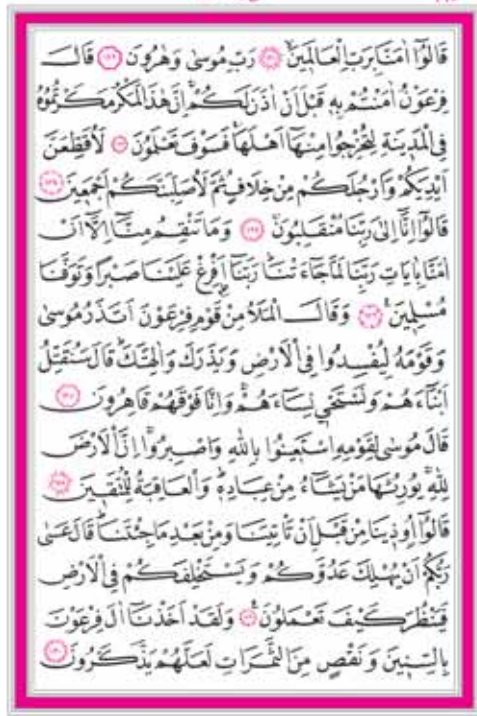 قَالُٓوا اٰمَنَّا بِرَبِّ الْعَالَمٖينَۙ ﴿١٢١﴾ رَبِّ مُوسٰى وَهٰرُونَ ﴿١٢٢﴾ قَالَ
فِرْعَوْنُ اٰمَنْتُمْ بِهٖ قَبْلَ اَنْ اٰذَنَ لَكُمْۚ اِنَّ هٰذَا لَمَكْرٌ مَكَرْتُمُوهُ
فِي الْمَدٖينَةِ لِتُخْرِجُوا مِنْهَٓا اَهْلَهَاۚ فَسَوْفَ تَعْلَمُونَ ﴿١٢٣﴾ لَاُقَطِّعَنَّ
اَيْدِيَكُمْ وَاَرْجُلَكُمْ مِنْ خِلَافٍ ثُمَّ لَاُصَلِّبَنَّكُمْ اَجْمَعٖينَ ﴿١٢٤﴾
قَالُٓوا اِنَّٓا اِلٰى رَبِّنَا مُنْقَلِبُونَۚ ﴿١٢٥﴾ وَمَا تَنْقِمُ مِنَّٓا اِلَّٓا اَنْ
اٰمَنَّا بِاٰيَاتِ رَبِّنَا لَمَّا جَٓاءَتْنَاۜ رَبَّنَٓا اَفْرِغْ عَلَيْنَا صَبْرًا وَتَوَفَّنَا
مُسْلِمٖينَ ﴿١٢٦﴾ وَقَالَ الْمَلَاُ مِنْ قَوْمِ فِرْعَوْنَ اَتَذَرُ مُوسٰى
وَقَوْمَهُ لِيُفْسِدُوا فِي الْاَرْضِ وَيَذَرَكَ وَاٰلِهَتَكَۜ قَالَ سَنُقَتِّلُ
اَبْنَٓاءَهُمْ وَنَسْتَحْيٖ نِسَٓاءَهُمْۚ وَاِنَّا فَوْقَهُمْ قَاهِرُونَ ﴿١٢٧﴾
قَالَ مُوسٰى لِقَوْمِهِ اسْتَعٖينُوا بِاللّٰهِ وَاصْبِرُواۚ اِنَّ الْاَرْضَ
لِلّٰهِ يُورِثُهَا مَنْ يَشَٓاءُ مِنْ عِبَادِهٖۜ وَالْعَاقِبَةُ لِلْمُتَّقٖينَ ﴿١٢٨﴾
قَالُٓوا اُو۫ذٖينَا مِنْ قَبْلِ اَنْ تَاْتِيَنَا وَمِنْ بَعْدِ مَا جِئْتَنَاۜ قَالَ عَسٰى
رَبُّكُمْ اَنْ يُهْلِكَ عَدُوَّكُمْ وَيَسْتَخْلِفَكُمْ فِي الْاَرْضِ
فَيَنْظُرَ كَيْفَ تَعْمَلُونَ ﴿١٢٩﴾ وَلَقَدْ اَخَذْنَٓا اٰلَ فِرْعَوْنَ
بِالسِّنٖينَ وَنَقْصٍ مِنَ الثَّمَرَاتِ لَعَلَّهُمْ يَذَّكَّرُونَ ﴿١٣٠﴾